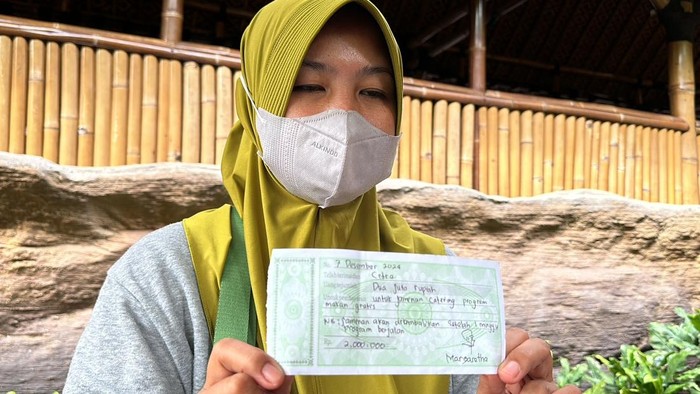 ALKINDO
7 Desember 2024
Citra
Dua juta rupiah
untuk jaminan Catering program
makan gratis
NB: jaminan akan dikembalikan setelah 1 minggu
program berjalan
Rp 2.000.000
Margaretha